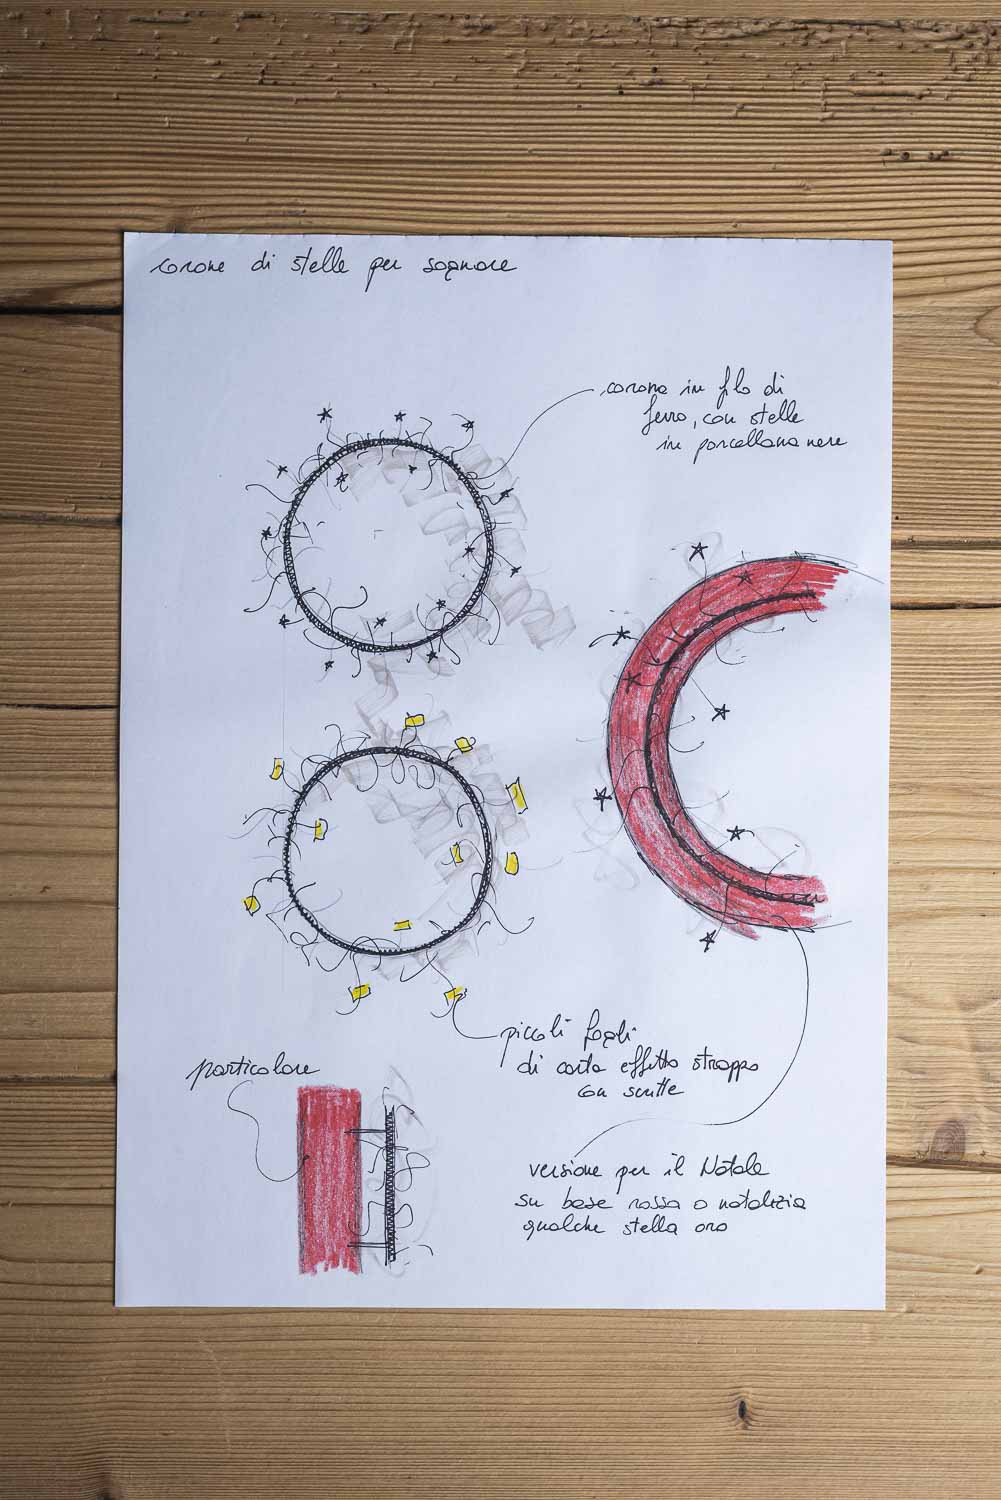 corone di stelle per sognare
corona in filo di
ferro, con stelle
in porcellana nere
piccoli fogli
di carta effetto strappo
con scritte
particolare
versione per il Natale
su base rossa o natalizia
qualche stella oro